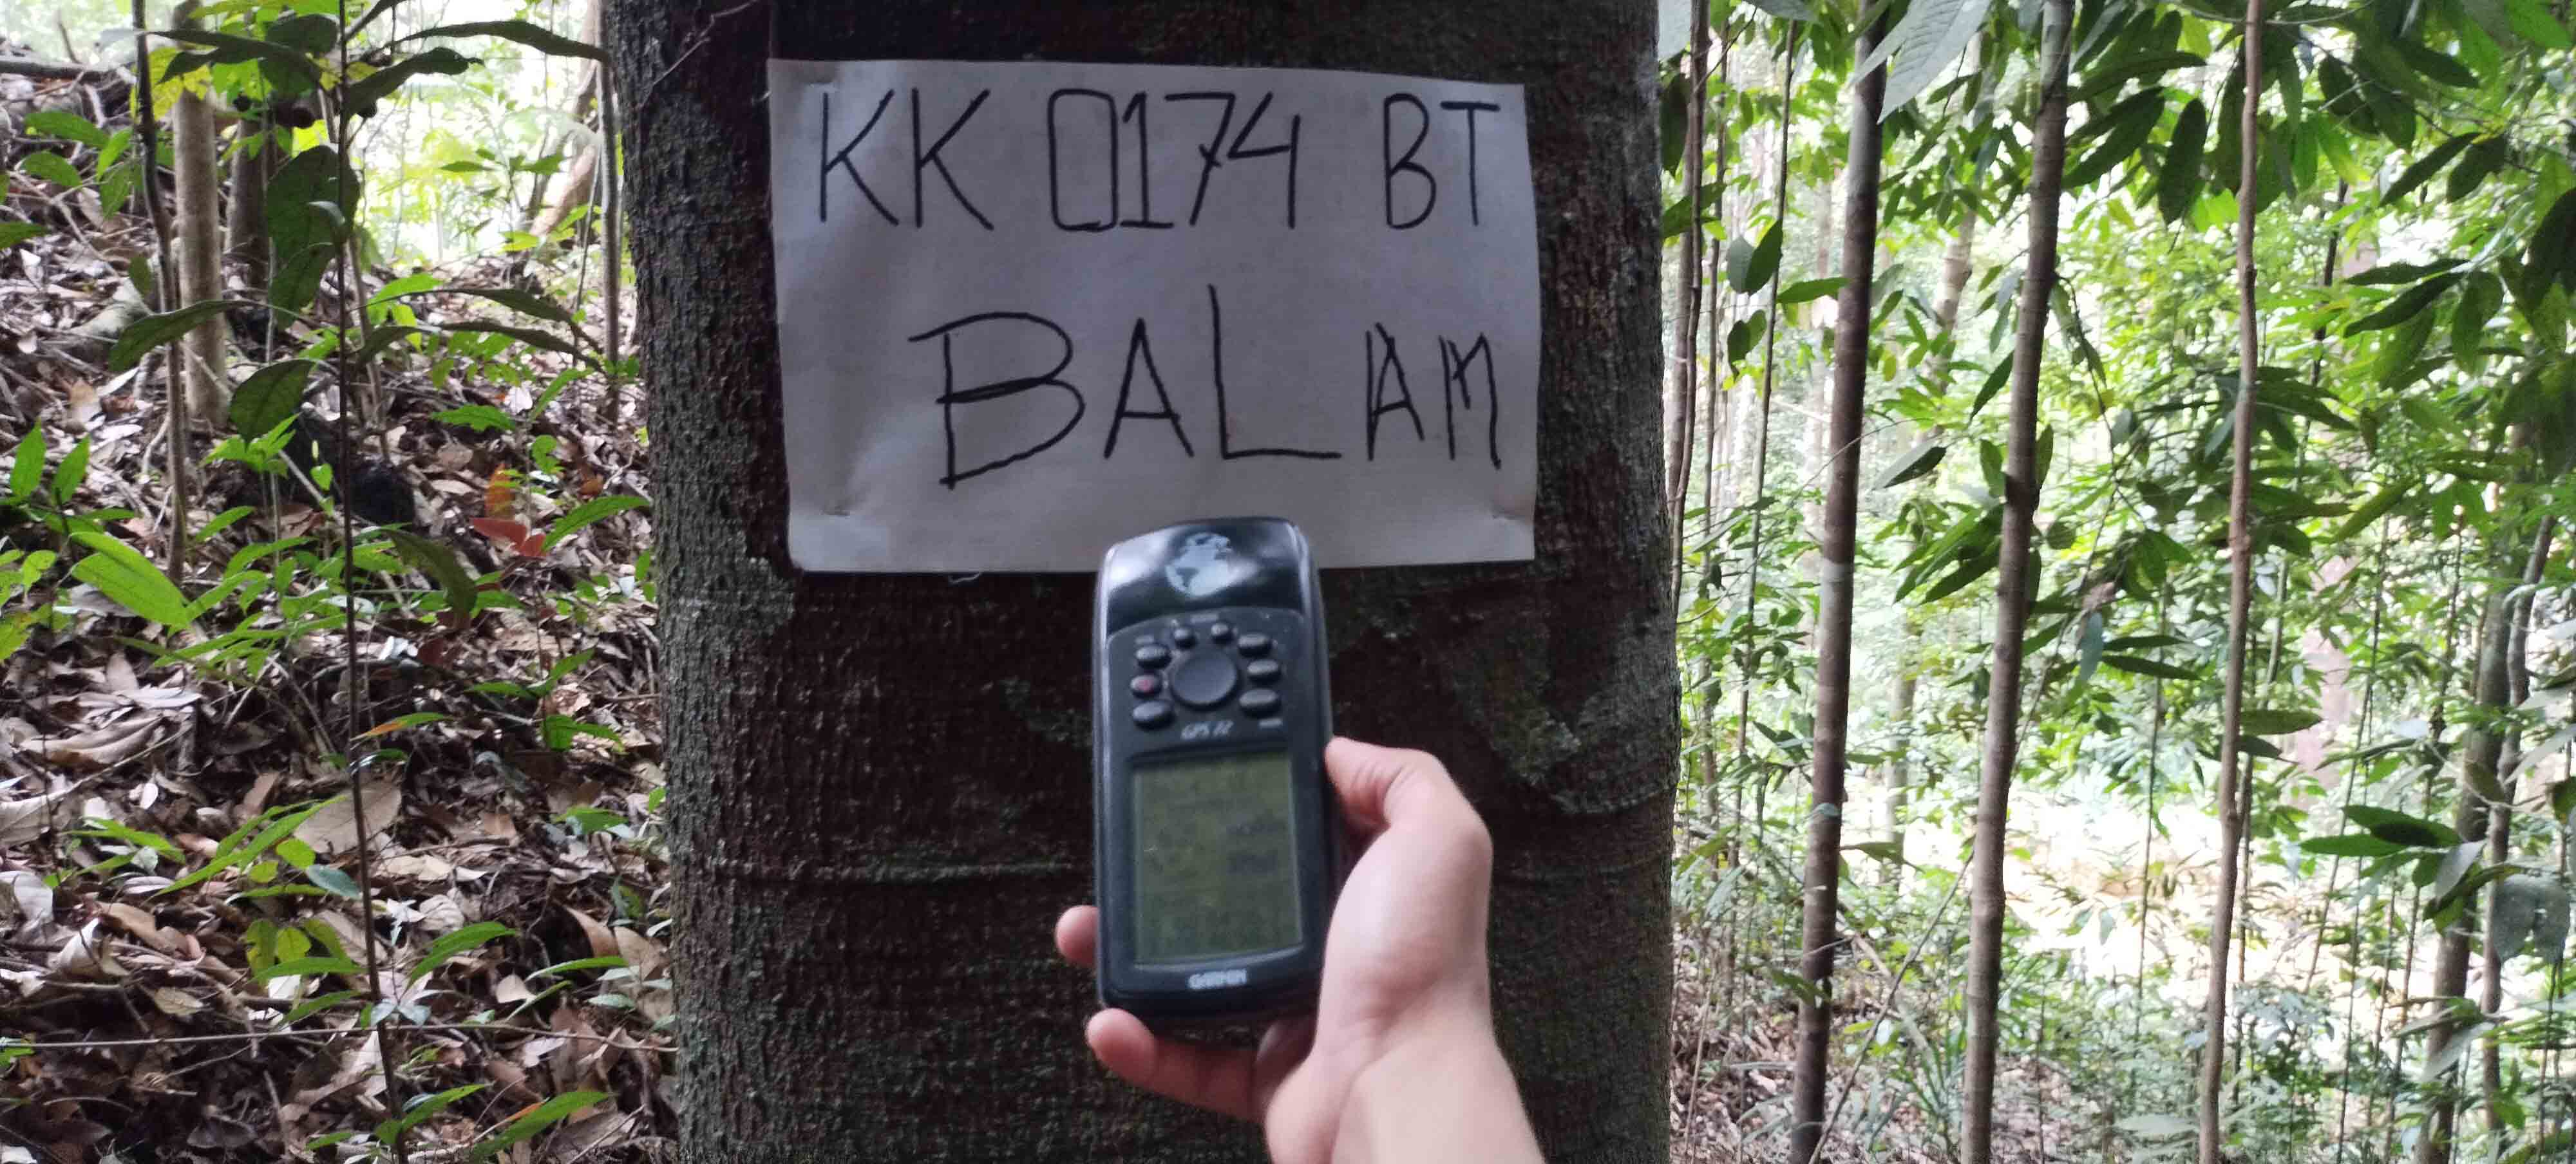 KK 0174 BT
BALAM
GPS 72
GARMIN